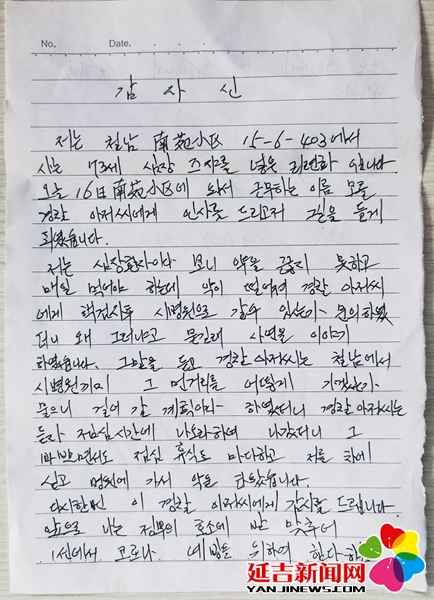 No.
Date.
감 사 신
저는 철남 南苑小区 15-6-403에서
사는 73세 심장 즈쟈를 넣은 리련화 입니다
오늘 16日 南苑小区에 와서 근무하는 이름 모를
경찰 아저씨에게 인사를 드리고저 필을 들게
되였습니다.
저는 심장환자이다 보니 약을 끊지 못하고
매일 먹어야 하는데 약이 떨어져 경찰 아저씨
에게 핵검사후 시병원으로 갈수 있는가 문의하였
더니 왜 그러냐고 묻길래 사연을 이야기
하였습니다. 그말을 듣고 경찰아저씨는 철남에서
시병원까지 그 먼거리를 어떻게 가겠는가
물으니 걸어 갈 계획이라 하였더니 경찰아저씨는
듣자 점심시간에 나오라하여 나갔더니 그
바쁜면서도 점심 휴식도 마다하고 저를 차에
싣고 병원에 가서 약을 타왔습니다.
다시한번 이 경찰 아저씨에게 감사를 드립니다
앞으로 나는 정부의 호소에 발 맞추어
코로나 예방을 위하여
延吉新闻网
YANJINEWS.COM